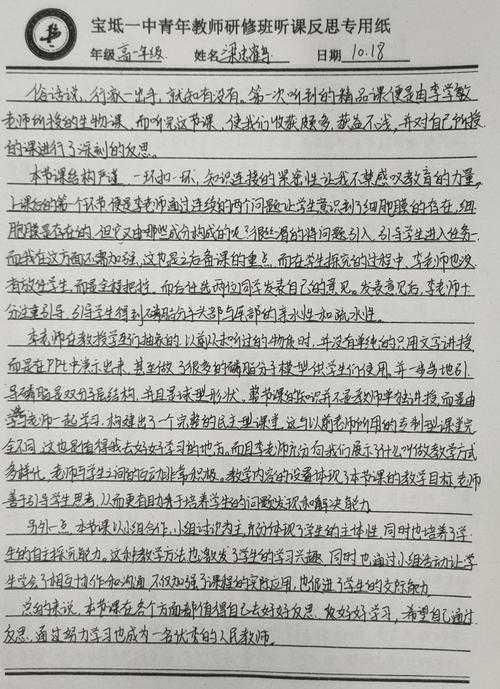 宝坻一中青年教师研修班听课反思专用纸
年级 高一年级 姓名 日期 10.18
俗语说,行家一出手,就知有没有。第一次听到的精品课便是由李学敏
老师所授的生物课,而听完这节课,使我们收获颇多,获益不浅,并对自己所授
的课进行了深刻的反思。
本节课结构严谨,一环扣一环,知识连接的紧密性让我不禁感叹教育的力量。
上课后的第一个环节便是李老师通过连续的两个问题让学生意识到了细胞膜的存在,细
胞膜是存在的,但它又由哪些成分构成的呢?很丝滑的将问题引入,引导学生进入任务一
而我在这方面还需加强,这也是之后备课的重点,而在学生探究的过程中,李老师也没
有放任学生,而是全程把控,而台任选两位同学发表自己的意见。发表意见后,李老师十
分注重引导,引导学生得到磷脂分子头部与尾部的亲水性和疏水性。
李老师在教授学生们抽象的,以前从未听过的物质时,并没有单纯的只用文字讲授,
而是在PPT中演示出来,甚至做了很多的磷脂分子模型供学生们使用,并一步步地引
导磷脂是双分子层结构,并且是球型形状,整节课的知识并不是教师单独讲授,而是由
学生与老师一起学习,构建出了一个完整的民主型课堂,这与以前老师所用的专制型课堂完
全不同,这也是值得我去好好学习的地方。而且李老师充分向我们展示了什么叫做教学方式
多样化,老师与学生之间的互动非常积极。教学内容的设置体现了本节课的教学目标,老师
善于引导学生思考,从而更有助于培养学生的问题发现和解决能力。
另外一点,本节课以小组合作,小组讨论为主,充分体现了学生的主体性,同时也培养了学
生的自主探究能力。这种教学方法也激发了学生的学习兴趣,同时也通过小组活动让学
生学会了相互协作和沟通,不仅加强了课程的实际应用,也促进了学生的交际能力。
总的来说,本节课在各个方面都值得自己去好好反思,好好学习,希望自己通过
反思,通过努力学习也成为一名优秀的人民教师。